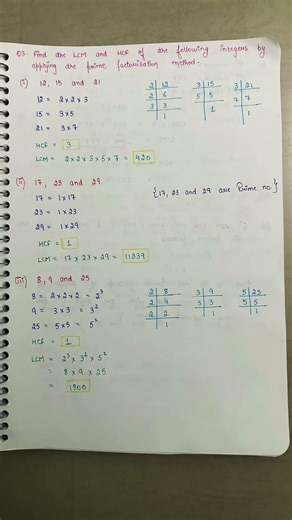 Q3. Find the LCM and HCF of the following integers by
applying the prime factorisation method.
(i) 12, 15 and 21
12 = 2 x 2 x 3
15 = 3 x 5
21 = 3 x 7
HCF = 3
LCM = 2 x 2 x 3 x 5 x 7 = 420
2 | 12
2 | 6
3 | 3
1
3 | 15
5 | 5
1
3 | 21
7 | 7
1
(ii) 17, 23 and 29
17 = 1 x 17
23 = 1 x 23
29 = 1 x 29
{17, 23 and 29 are Prime no}
HCF = 1
LCM = 17 x 23 x 29 = 11339
(iii) 8, 9 and 25
8 = 2 x 2 x 2 = 2³
9 = 3 x 3 = 3²
25 = 5 x 5 = 5²
HCF = 1
LCM = 2³ x 3² x 5²
= 8 x 9 x 25
= 1800
2 | 8
2 | 4
2 | 2
1
3 | 9
3 | 3
1
5 | 25
5 | 5
1